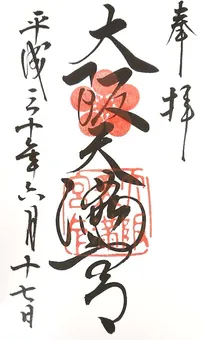 奉拝
大阪天満宮
平成三十年六月十七日